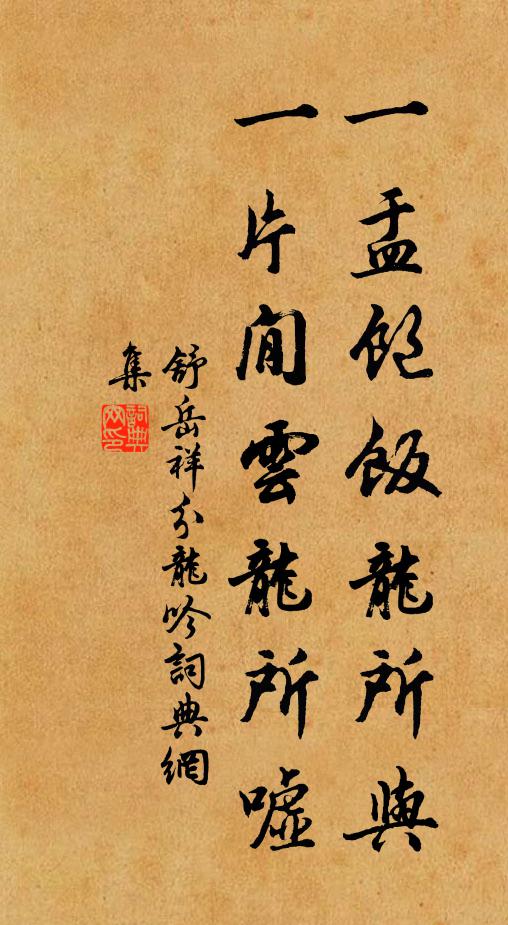 一盂飽飯龍所與
一片閒雲龍所噓
舒岳祥分龍吟詞典網
集
詞典網印